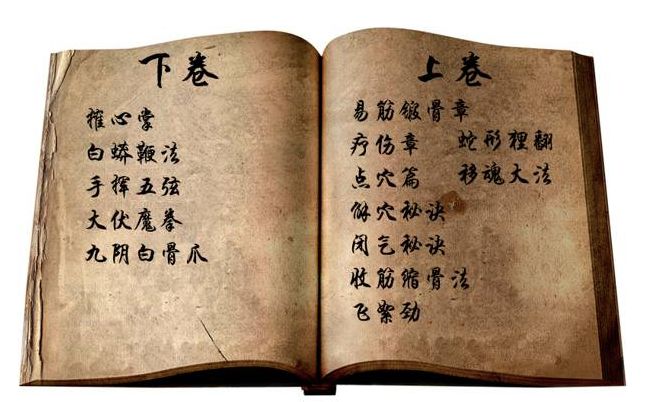 上卷
易筋锻骨章
疗伤章 蛇形狸翻
点穴篇 移魂大法
解穴秘诀
闭气秘诀
收筋缩骨法
飞絮劲
下卷
摧心掌
白蟒鞭法
手挥五弦
大伏魔拳
九阴白骨爪